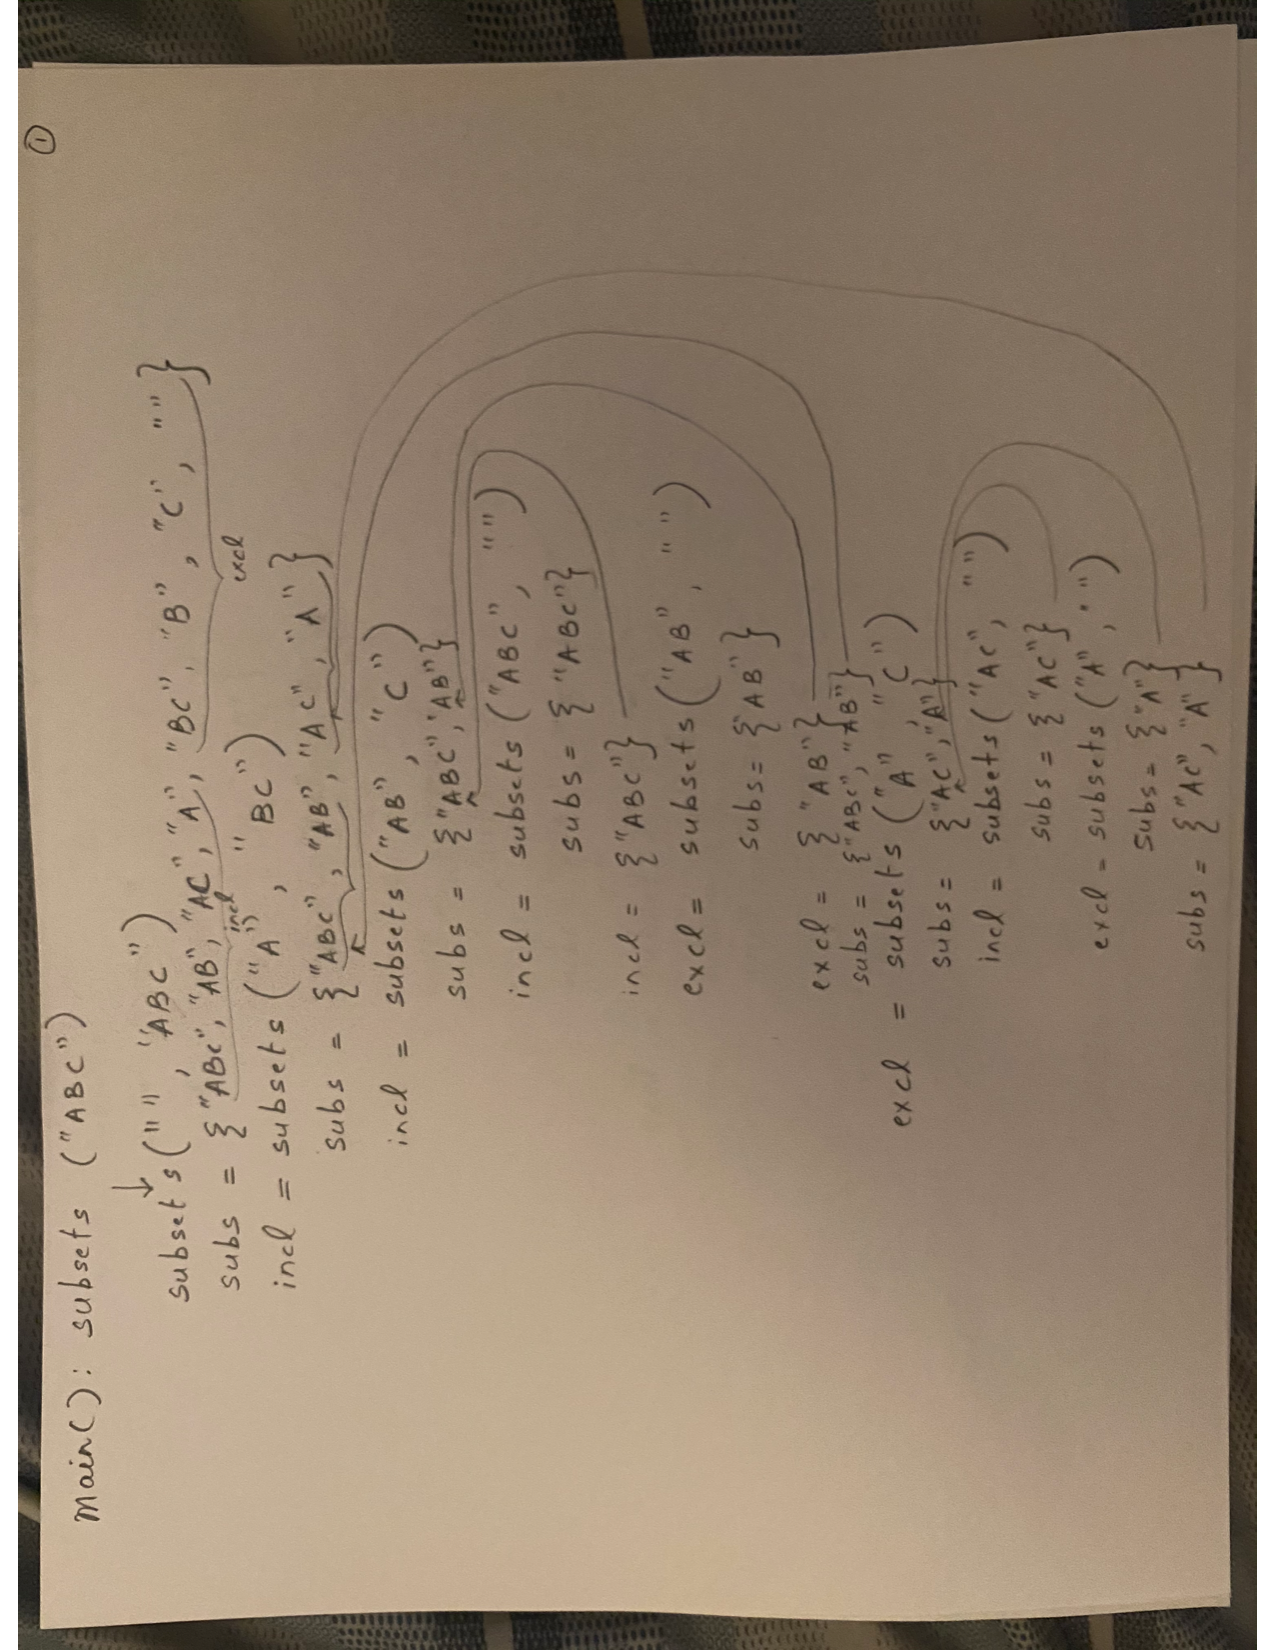 ①
main(): subsets ("ABC")
↓
subsets("", "ABC")
subs = {"ABC", "AB", "AC", "A", "BC", "B", "C", ""}
incl excl
incl = subsets ("A", "BC")
subs = {"ABC", "AB", "AC", "A"}
incl = subsets ("AB", "C")
subs = {"ABC", "AB"}
incl = subsets ("ABC", "")
subs = {"ABC"}
incl = {"ABC"}
excl = subsets ("AB", "")
subs = {"AB"}
excl = {"AB"}
subs = {"ABC", "AB"}
excl = subsets ("A", "C")
subs = {"AC", "A"}
incl = subsets ("AC", "")
subs = {"AC"}
excl = subsets ("A", "")
subs = {"A"}
subs = {"AC", "A"}